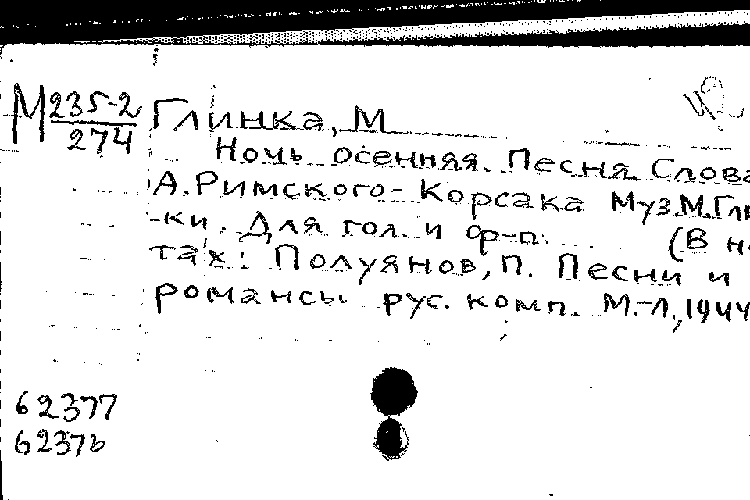 М 235-2
274
Глинка, М
Ночь осенняя. Песня Слова
А. Римского-Корсака Муз. М. Гли
-ки. Для гол. и ф-п. (В но
тах: Полуянов, П. Песни и
романсы рус. комп. М.-Л., 1944
62377
62376